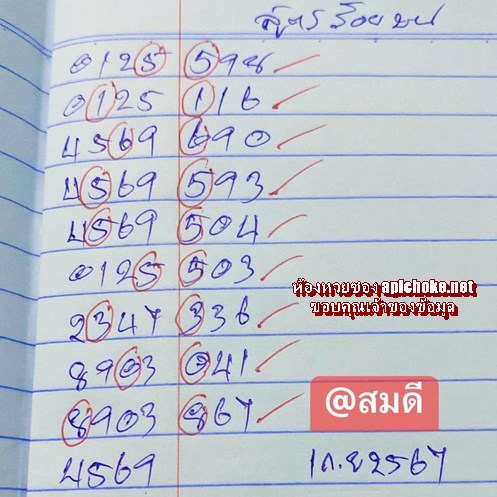 สูตรร้อยบน
0125 598 ✓
0125 116 ✓
4569 690 ✓
4569 593 ✓
4569 504 ✓
0125 503 ✓
ห้องหวยซอง apichoke.net
ขอบคุณเจ้าของข้อมูล
2347 336 ✓
8903 041 ✓
@สมดี
8903 867 ✓
4569 1ก.ย2567